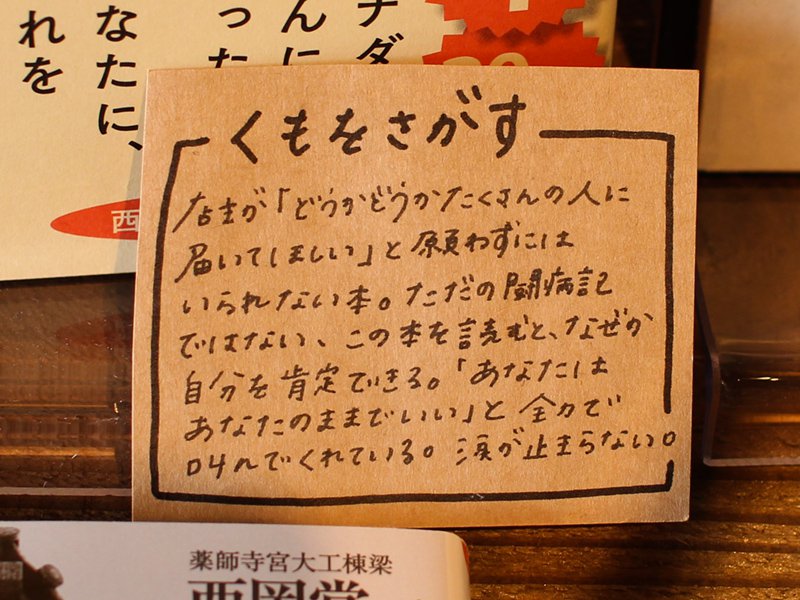 ナダ
んに
った
なたに、
れを
西
くもをさがす
店主が「どうかどうかたくさんの人に
届いてほしい」と願わずには
いられない本。ただの闘病記
ではない、この本を読むと、なぜか
自分を肯定できる。「あなたは
あなたのままでいい」と全力で
叫んでくれている。涙が止まらない。
薬師寺宮大工棟梁
西岡常